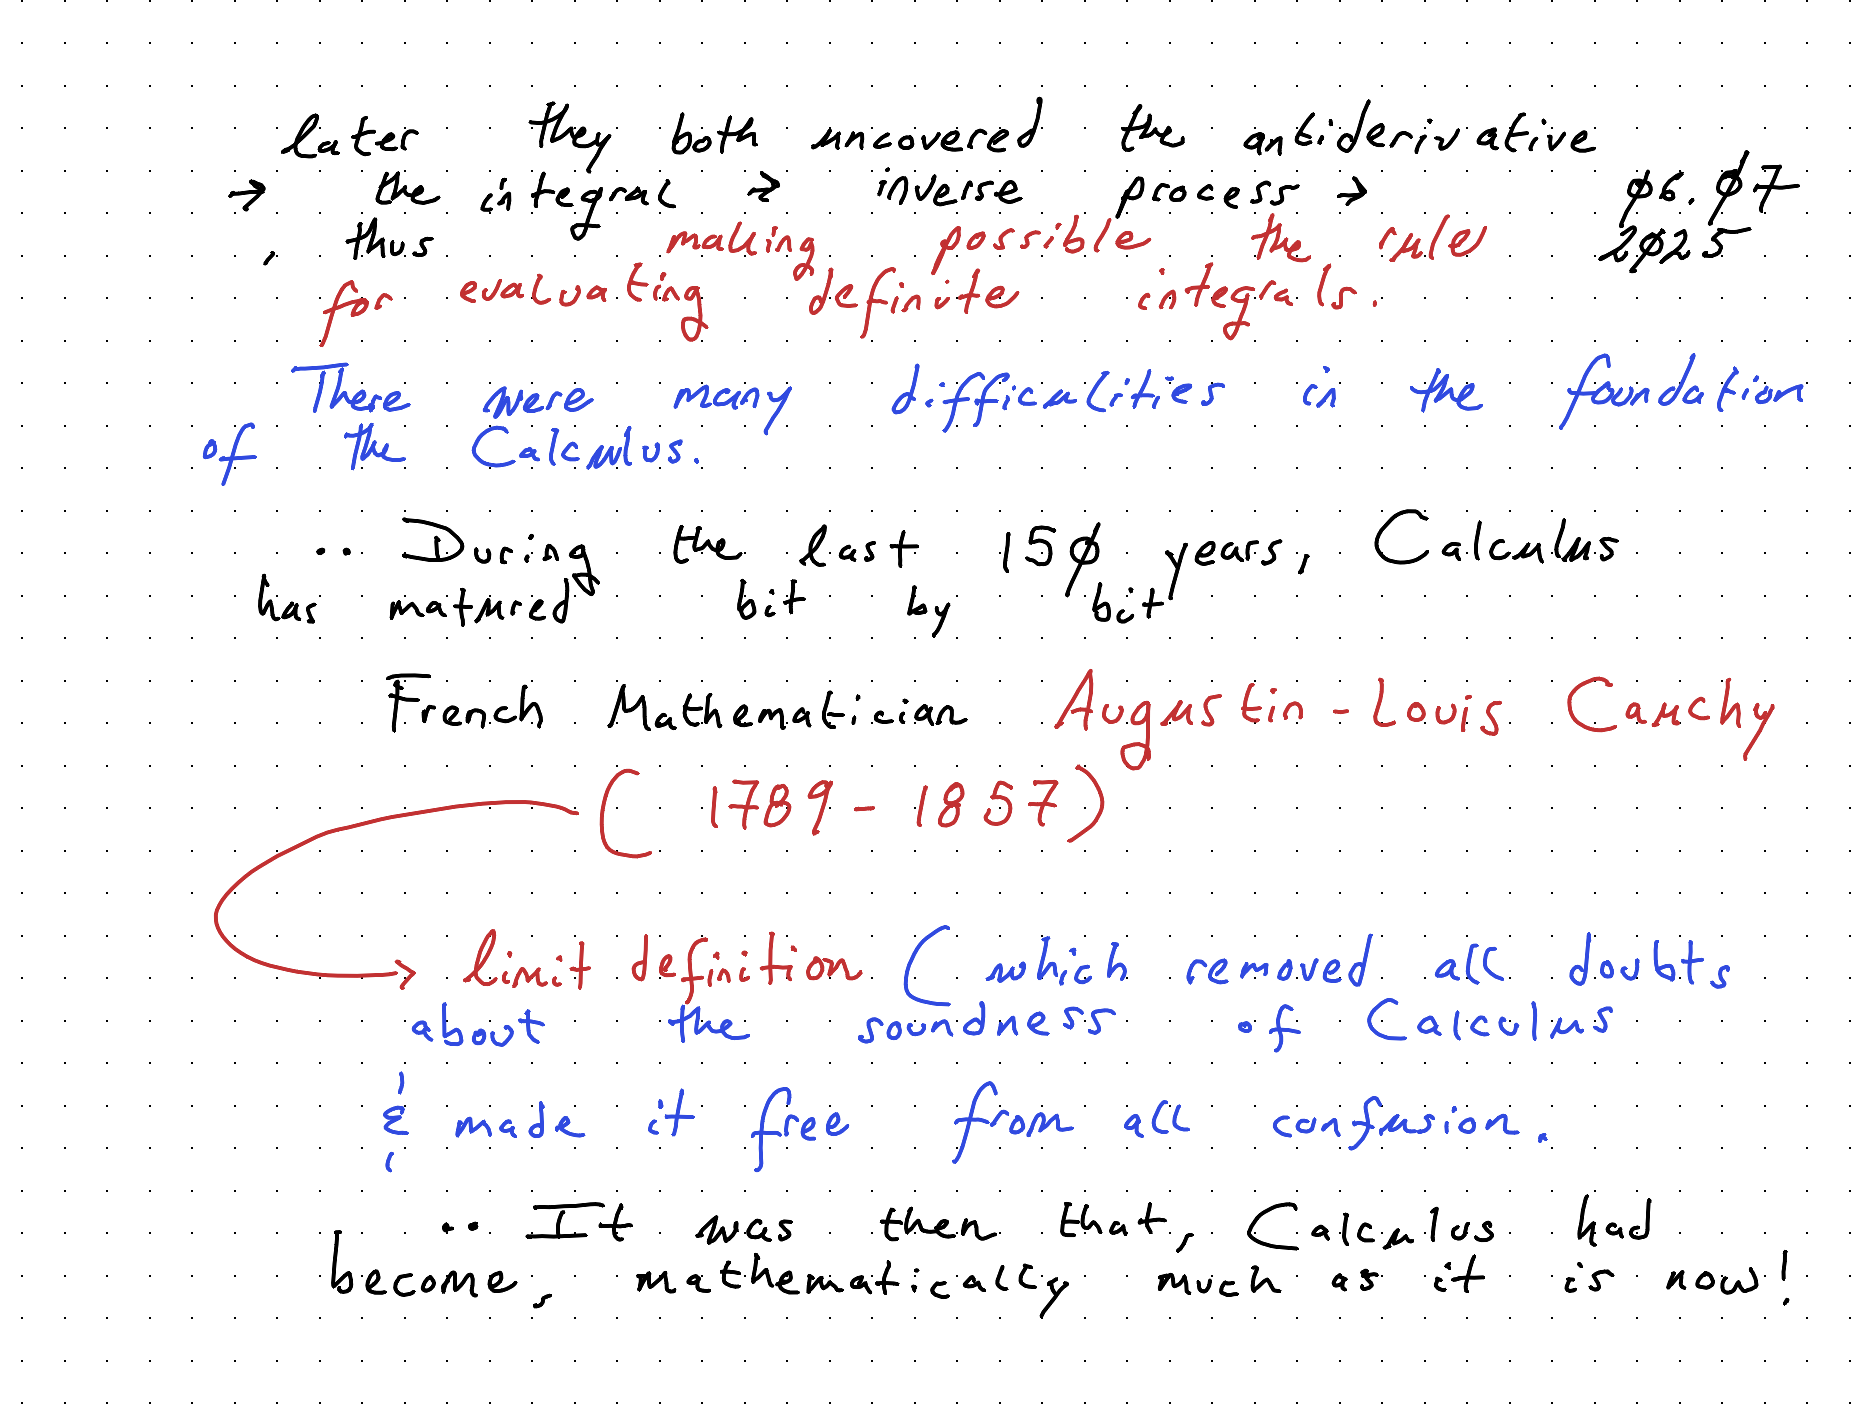 later they both uncovered the antiderivative
→ the integral → inverse process → 06.07
, thus making possible the rule 2025
for evaluating definite integrals.
There were many difficulities in the foundation
of the Calculus.
.. During the last 150 years, Calculus
has matured bit by bit
French Mathematician Augustin-Louis Cauchy
(1789-1857)
→ limit definition (which removed all doubts
about the soundness of Calculus
& made it free from all confusion.
.. It was then that, Calculus had
become, mathematically much as it is now!